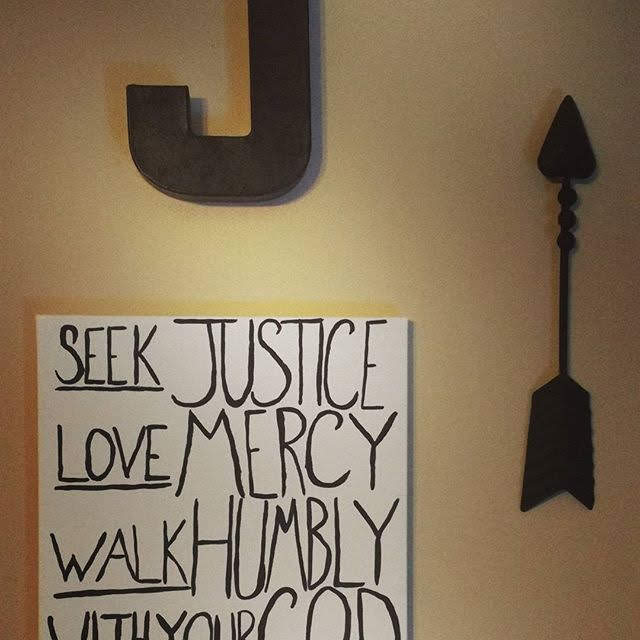 J
SEEK JUSTICE
LOVE MERCY
WALK HUMBLY
WITH YOUR GOD